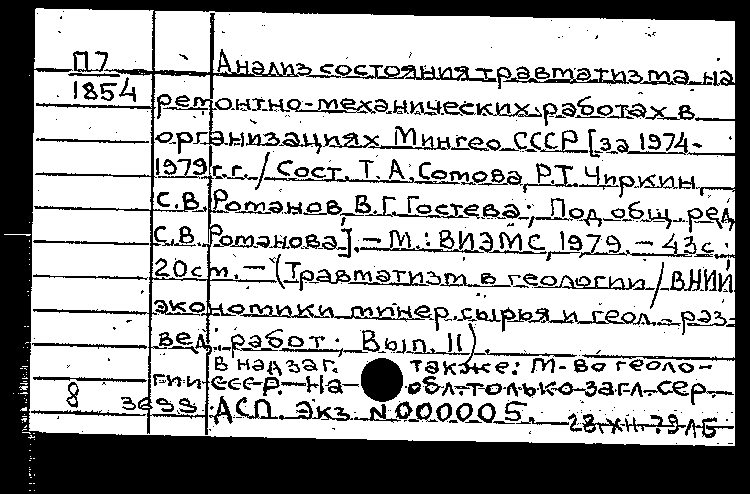 П7
1854
Анализ состояния травматизма на
ремонтно-механических работах в
организациях Мингео СССР [за 1974-
1979 г.г. / Сост. Т.А.Сомова, Р.Т.Чиркин,
С.В.Романов, В.Г.Гостева; Под общ. ред.
С.В.Романова]. - М.: ВИЭМС, 1979. - 43с.;
20см. - (Травматизм в геологии / ВНИИ
экономики минер. сырья и геол.-раз-
вед. работ; Вып. 11).
В надзаг. также: М-во геоло-
гии СССР. На обл. только загл. сер.
8 3699 ДСП. Экз. N000005.
28.XII.79 ЛБ